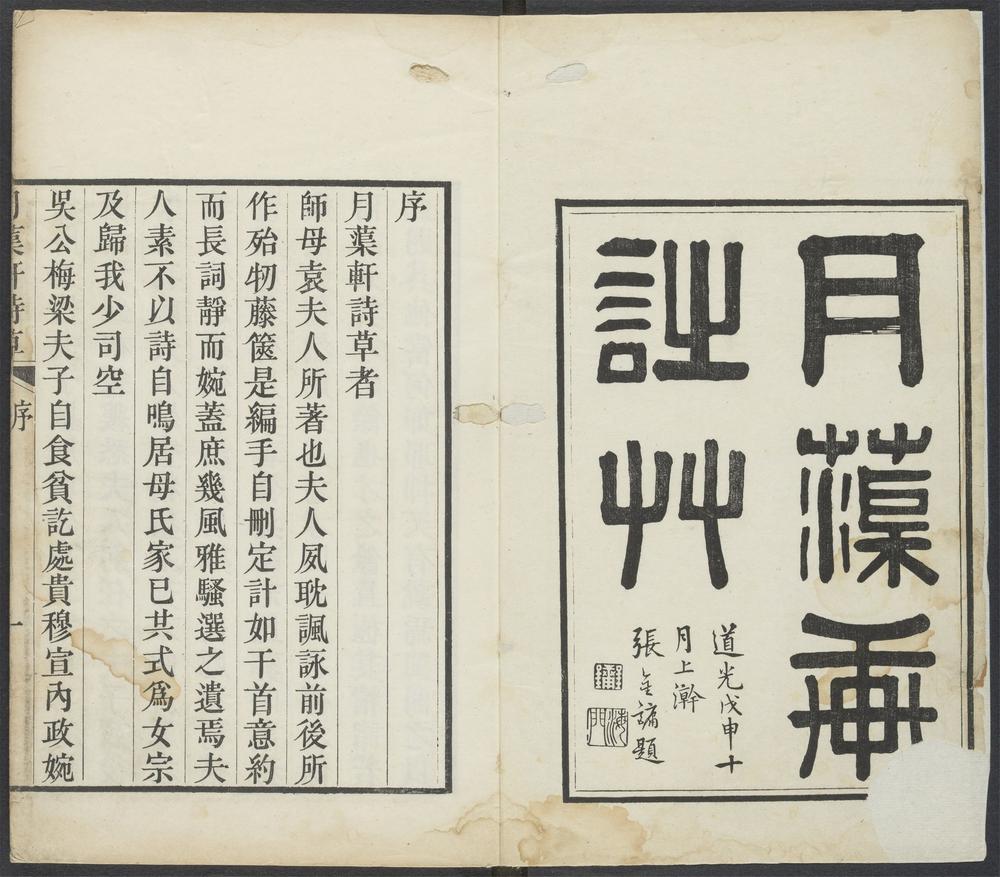 月蕖軒
詩艸
道光戊申十
月上澣
張金鏞題
海門
序
月蕖軒詩草者
師母袁夫人所著也夫人夙耽諷詠前後所
作殆牣藤篋是編手自刪定計如干首意約
而長詞靜而婉蓋庶幾風雅騷選之遺焉夫
人素不以詩自鳴居母氏家已共式爲女宗
及歸我少司空
吳公梅梁夫子自食貧訖處貴穆宣內政婉
月蕖軒詩草 序 一